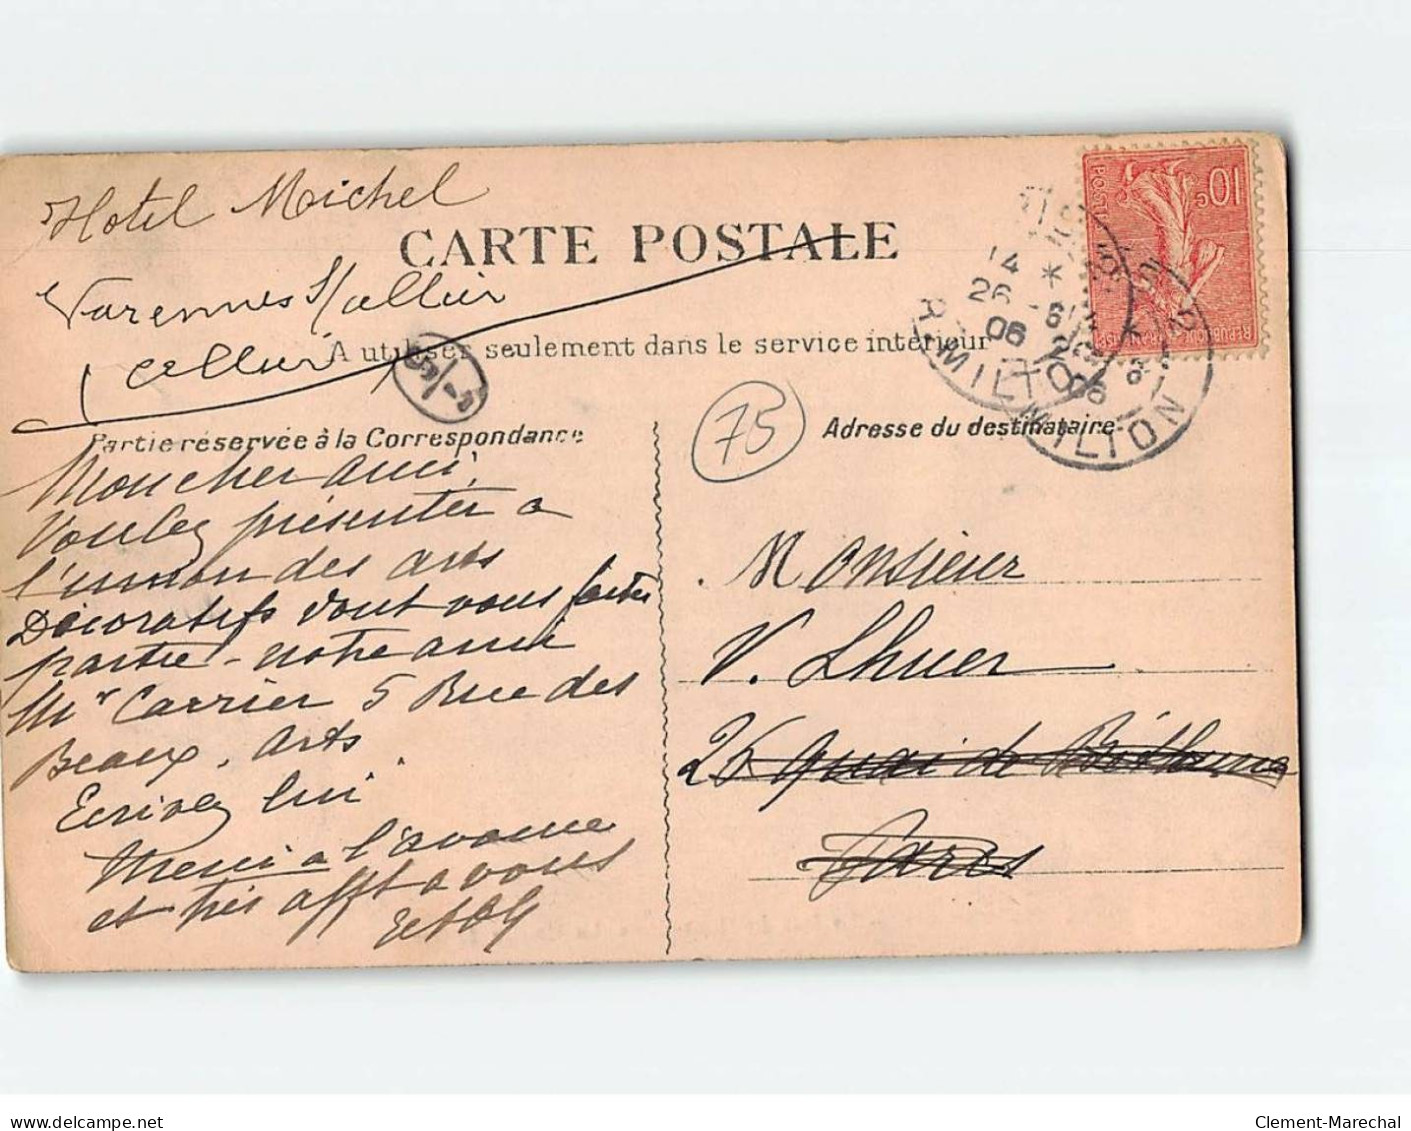 Hotel Michel
CARTE POSTALE
Varennes
A utiliser seulement dans le service intérieur
10c
POSTES
REPUBLIQUE FRANCAISE
14
26 -6
06
R. MILTON
R. MILTON
75
Partie réservée à la Correspondance
Adresse du destinataire
Mon cher ami,
Voulez présenter a
l'union des arts
Décoratifs dont vous faites
partie - notre ami
Mr Carrier 5 Rue des
Beaux. Arts
Ecrivez lui
Merci a l'avance
et très afft a vous
Monsieur
V. Lhuer
26 quai de Béthune
Paris
delcampe.net
Clement-Marechal